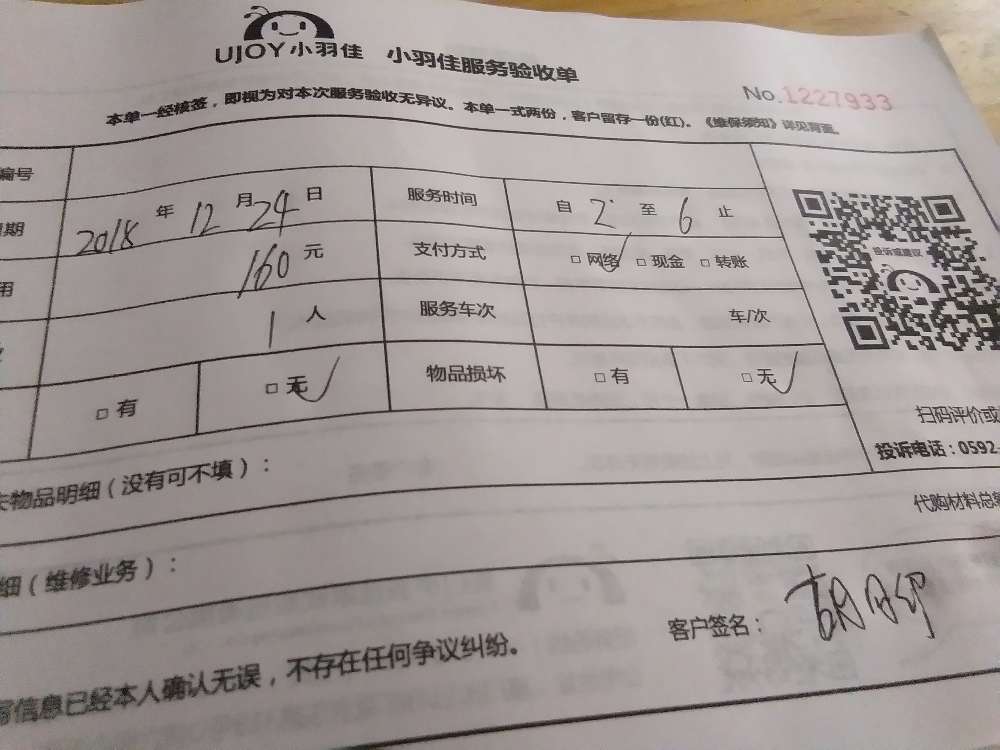 UJOY小羽佳 小羽佳服务验收单
No.1227933
本单一经核签，即视为对本次服务验收无异议。本单一式两份，客户留存一份(红)。《维保须知》详见背面。
编号
期 2018 年 12 月 24 日 服务时间 自 2 至 6 止
用 160 元 支付方式 □ 网络 □ 现金 □ 转账
1 人 服务车次 车/次
□ 有 □ 无 物品损坏 □ 有 □ 无
投诉或建议
扫码评价或
投诉电话：0592
物品明细（没有可不填）：
代购材料总
细（维修业务）：
客户签名：
信息已经本人确认无误，不存在任何争议纠纷。